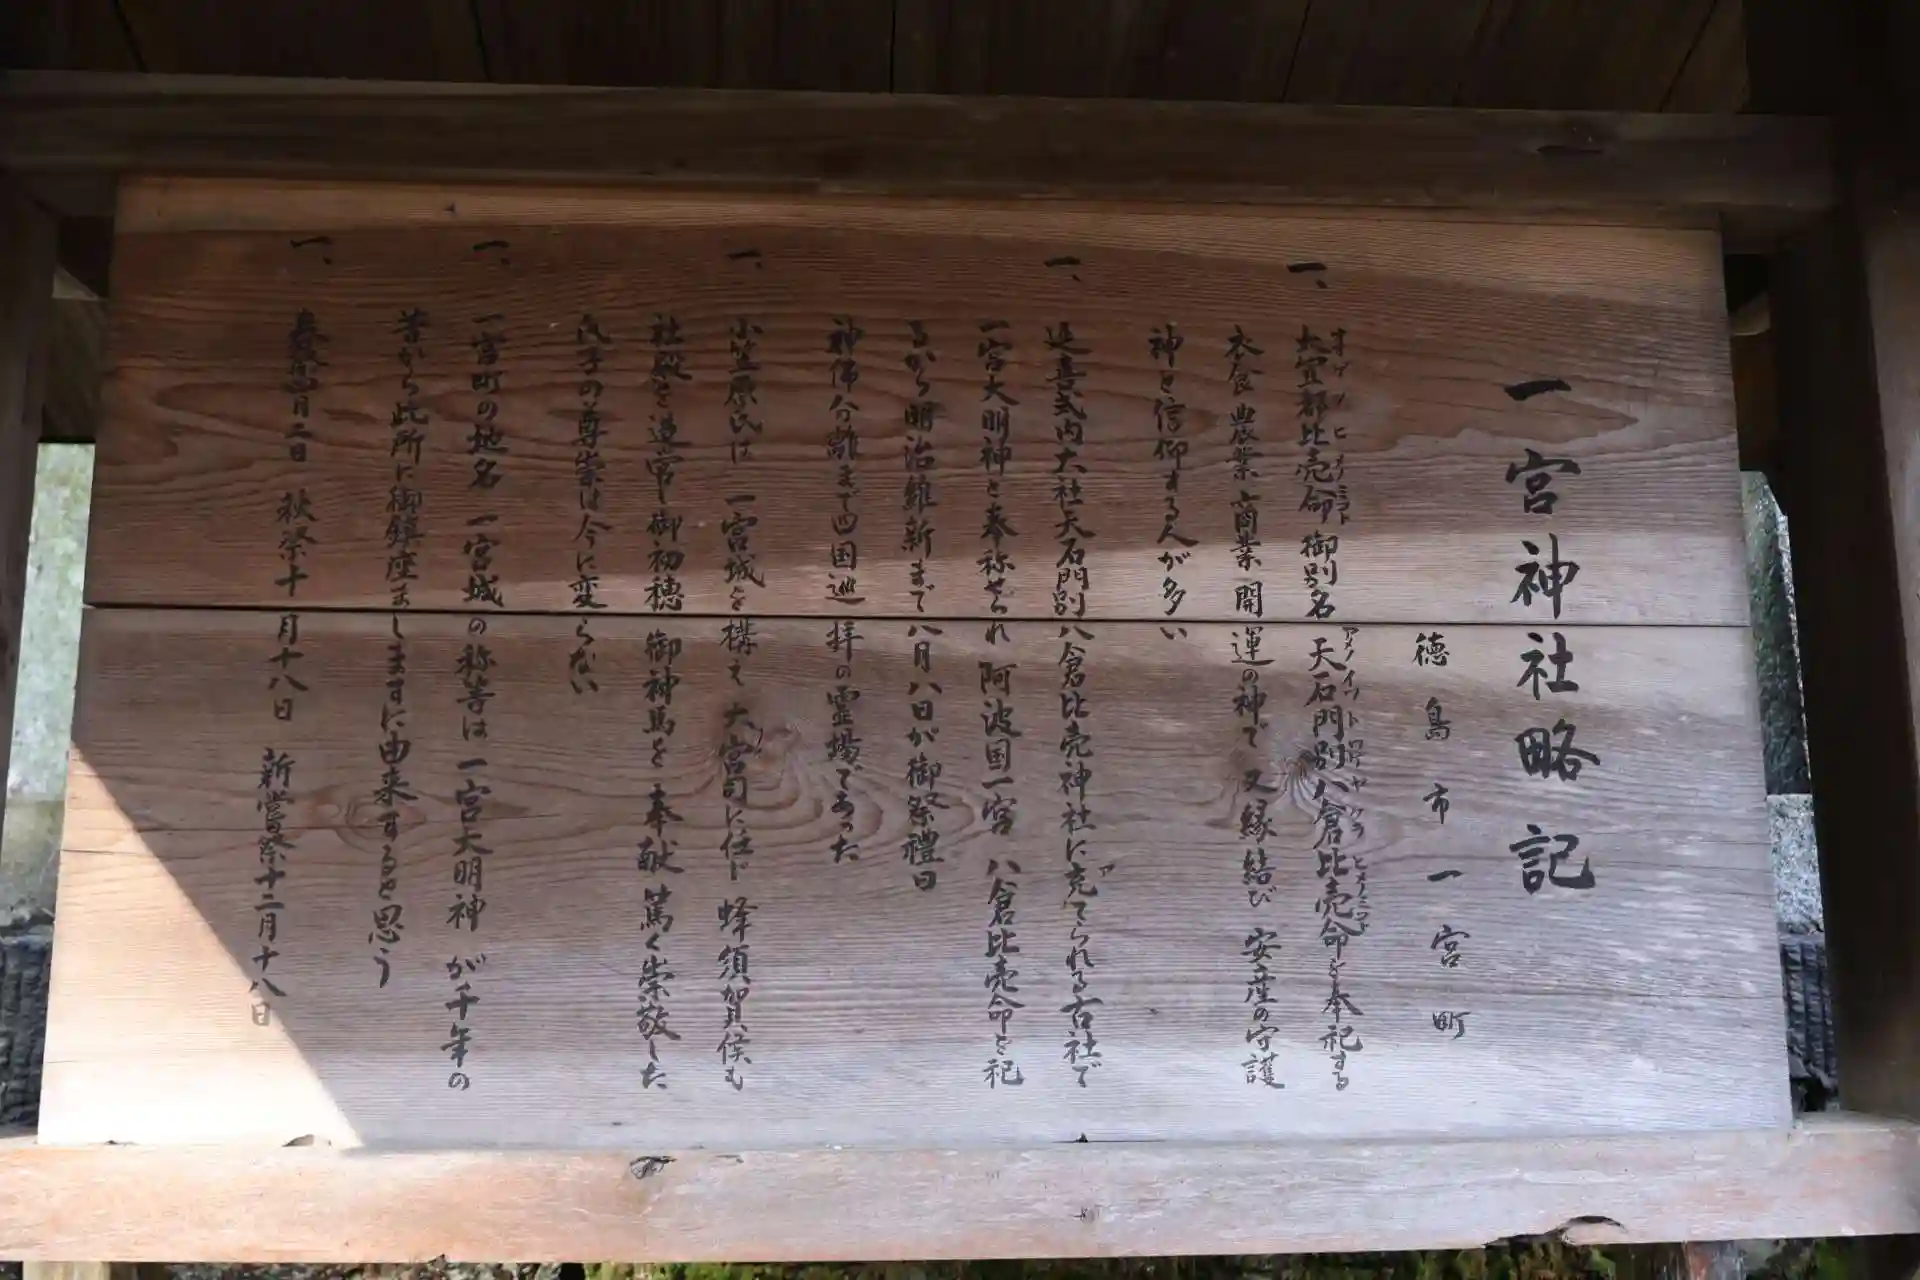 一宮神社略記
徳島市一宮町
一、大宜都比売命 御別名 天石門別八倉比売命を奉祀する
オゲツヒメノミコト アメノイワトワケヤクラヒメノミコト
衣食農業 商業 開運の神で 又縁結び 安産の守護
神と信仰する人が多い
一、延喜式内大社天石門別八倉比売神社に充てられる古社で
ア
一宮大明神と奉称せられ 阿波国一宮 八倉比売命を祀
るから明治維新まで八月八日が御祭禮日
神佛分離まで四国巡拝の霊場であった
一、小笠原氏は 一宮城を構え 大宮司に任じ 蜂須賀侯も
社殿を造営し御初穂 御神馬を奉献 篤く崇敬した
氏子の尊崇は今に変らない
一、一宮町の地名 一宮城の称等は 一宮大明神 が千年の
昔から此所に御鎮座ましますに由来すると思う
一、春祭四月二日 秋祭十月十八日 新嘗祭十二月十八日